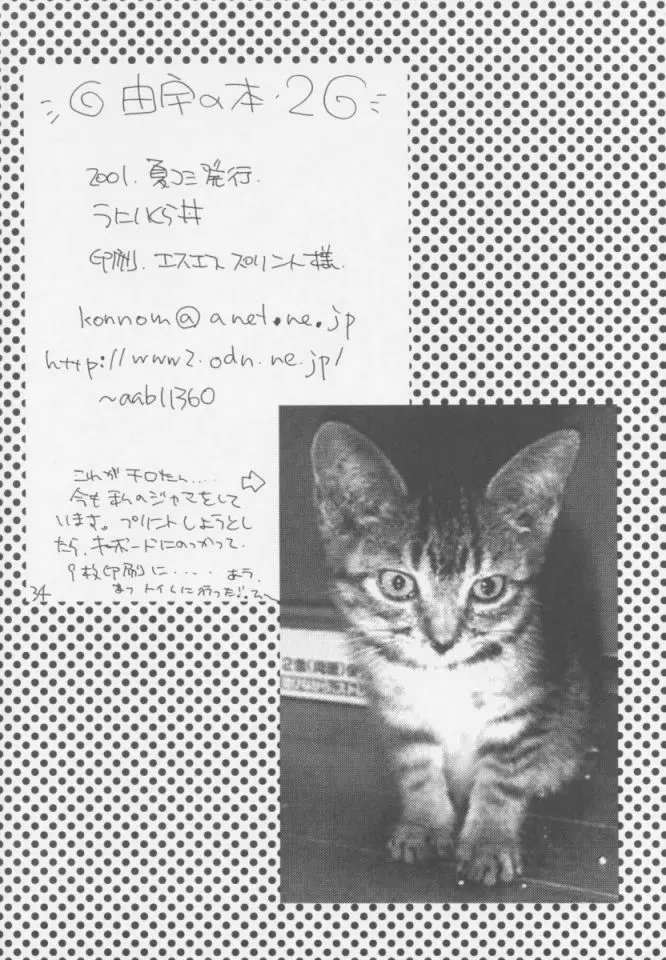 ◎ 由宇の本・2◎
2001. 夏コミ発行.
うにいくら丼
印刷. エスエスプリント様.
konnom@anet.ne.jp
http://www2.odn.ne.jp/
~aab11360
これがチロたん....⇨
今もまんのジャマをして
います。プリントしようとし
たら、キーボードにのっかって
9枚印刷に.... あう.
あっ トイレに行った
34
2